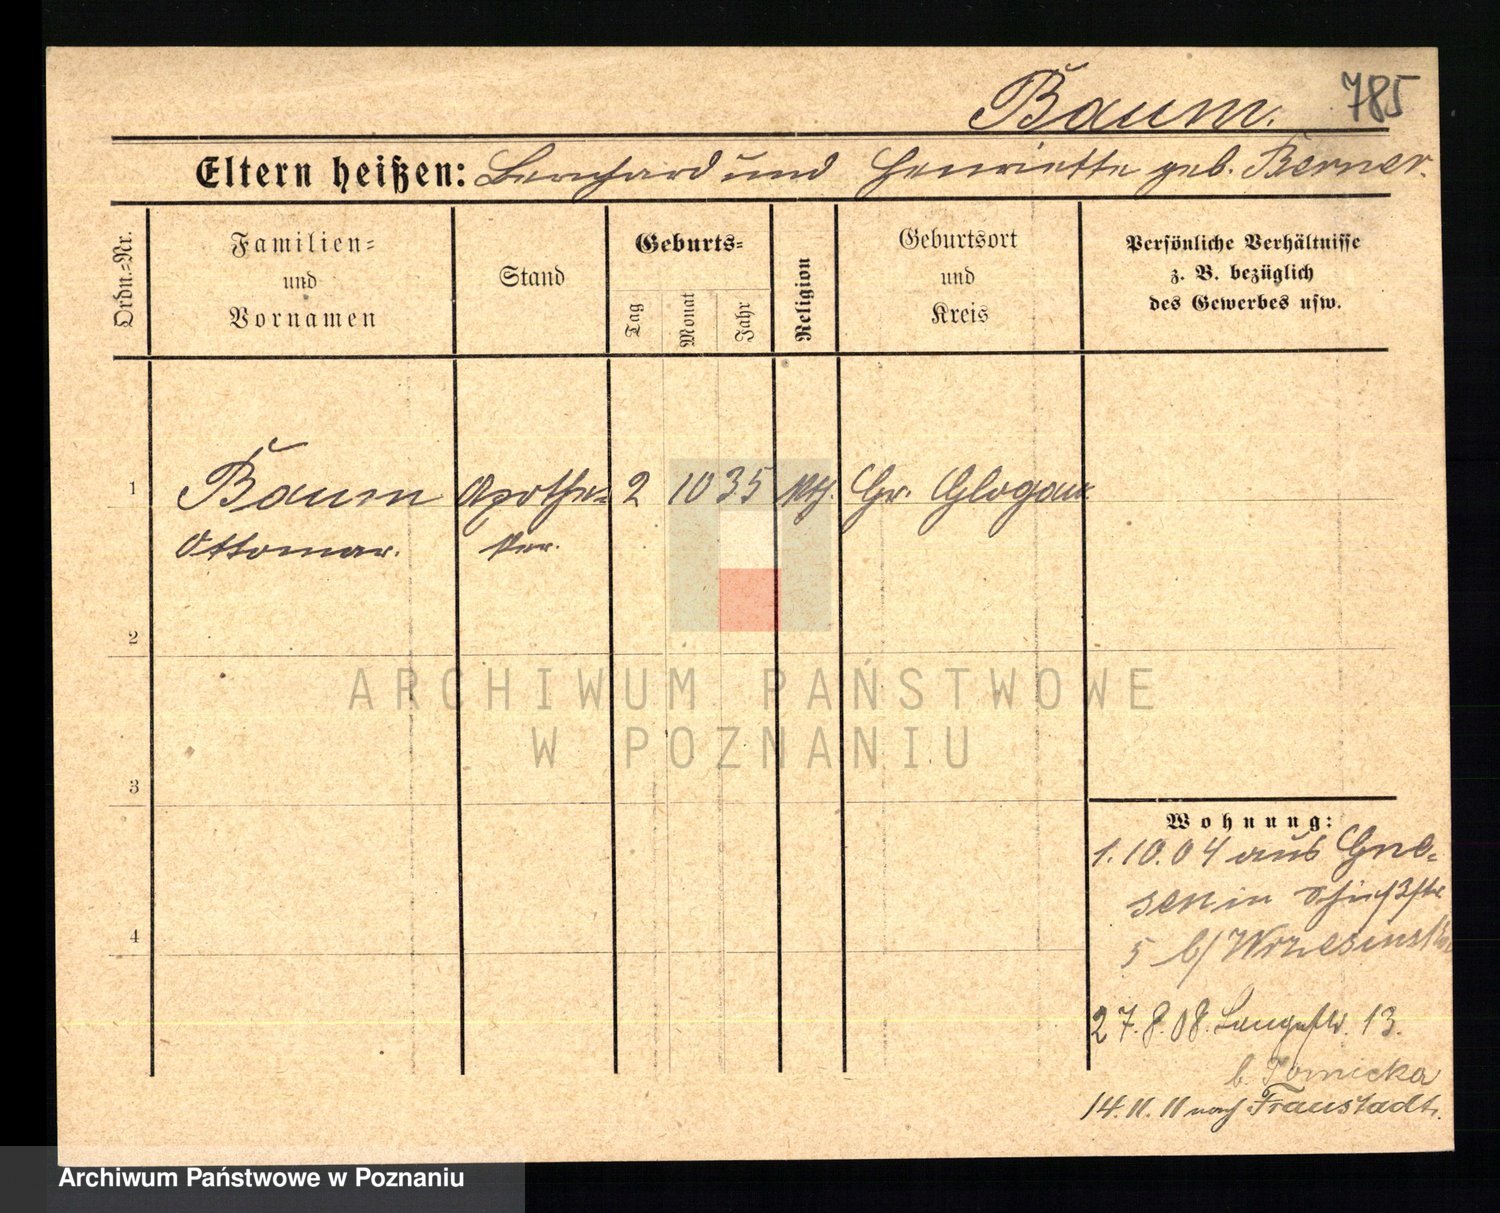 Baum.
785
Eltern heißen: Bernhard und Henriette geb. Berner.
Ordn.=Nr.
Familien=
und
Vornamen
Stand
Geburts=
Tag
Monat
Jahr
Religion
Geburtsort
und
Kreis
Persönliche Verhältnisse
z. B. bezüglich
des Gewerbes usw.
1 Baum Apothe= 2 10 35 kth. Gr. Glogau
Ottomar. ker.
2
3
4
Wohnung:
1.10.04 aus Gne=
sen in Schießstr
5 b/ Wrzesinska
27.8.08. Langestr. 13.
b. Tomicka
14.11.11 nach Fraustadt.
ARCHIWUM PAŃSTWOWE
W POZNANIU
Archiwum Państwowe w Poznaniu